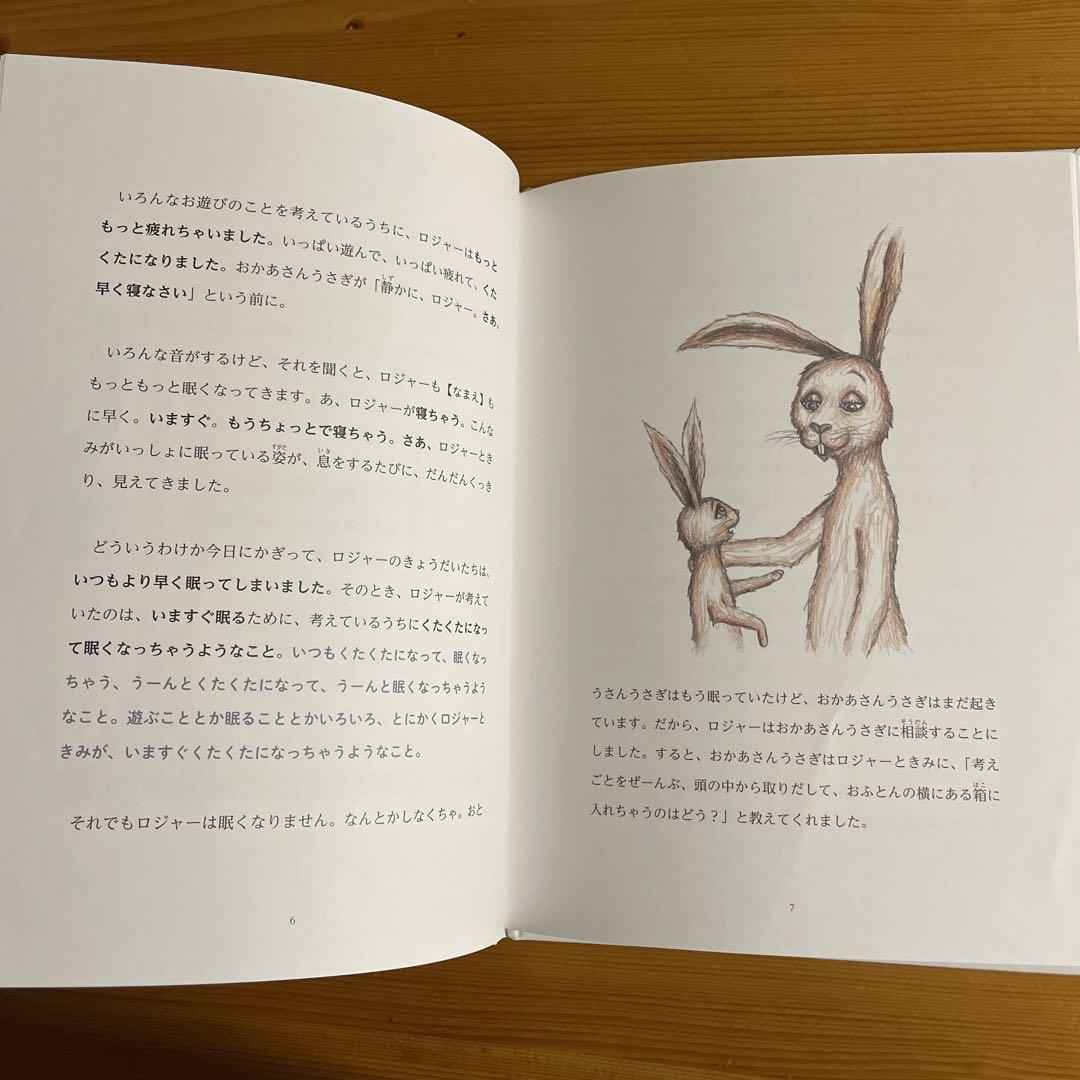 いろんなお遊びのことを考えているうちに、ロジャーはもっと
もっと疲れちゃいました。いっぱい遊んで、いっぱい疲れて、くた
くたになりました。おかあさんうさぎが「静かに、ロジャー。さあ、
早く寝なさい」という前に。
いろんな音がするけど、それを聞くと、ロジャーも【なまえ】も
もっともっと眠くなってきます。あ、ロジャーが寝ちゃう。こんな
に早く。いますぐ。もうちょっとで寝ちゃう。さあ、ロジャーとき
みがいっしょに眠っている姿が、息をするたびに、だんだんくっき
り、見えてきました。
どういうわけか今日にかぎって、ロジャーのきょうだいたちは、
いつもより早く眠ってしまいました。そのとき、ロジャーが考えて
いたのは、いますぐ眠るために、考えているうちにくたくたになっ
て眠くなっちゃうようなこと。いつもくたくたになって、眠くなっ
ちゃう、うーんとくたくたになって、うーんと眠くなっちゃうよう
なこと。遊ぶこととか眠ることとかいろいろ、とにかくロジャーと
きみが、いますぐくたくたになっちゃうようなこと。
それでもロジャーは眠くなりません。なんとかしなくちゃ。おと
6
うさんうさぎはもう眠っていたけど、おかあさんうさぎはまだ起き
ています。だから、ロジャーはおかあさんうさぎに相談することに
しました。すると、おかあさんうさぎはロジャーときみに、「考え
ごとをぜーんぶ、頭の中から取りだして、おふとんの横にある箱に
入れちゃうのはどう？」と教えてくれました。
7